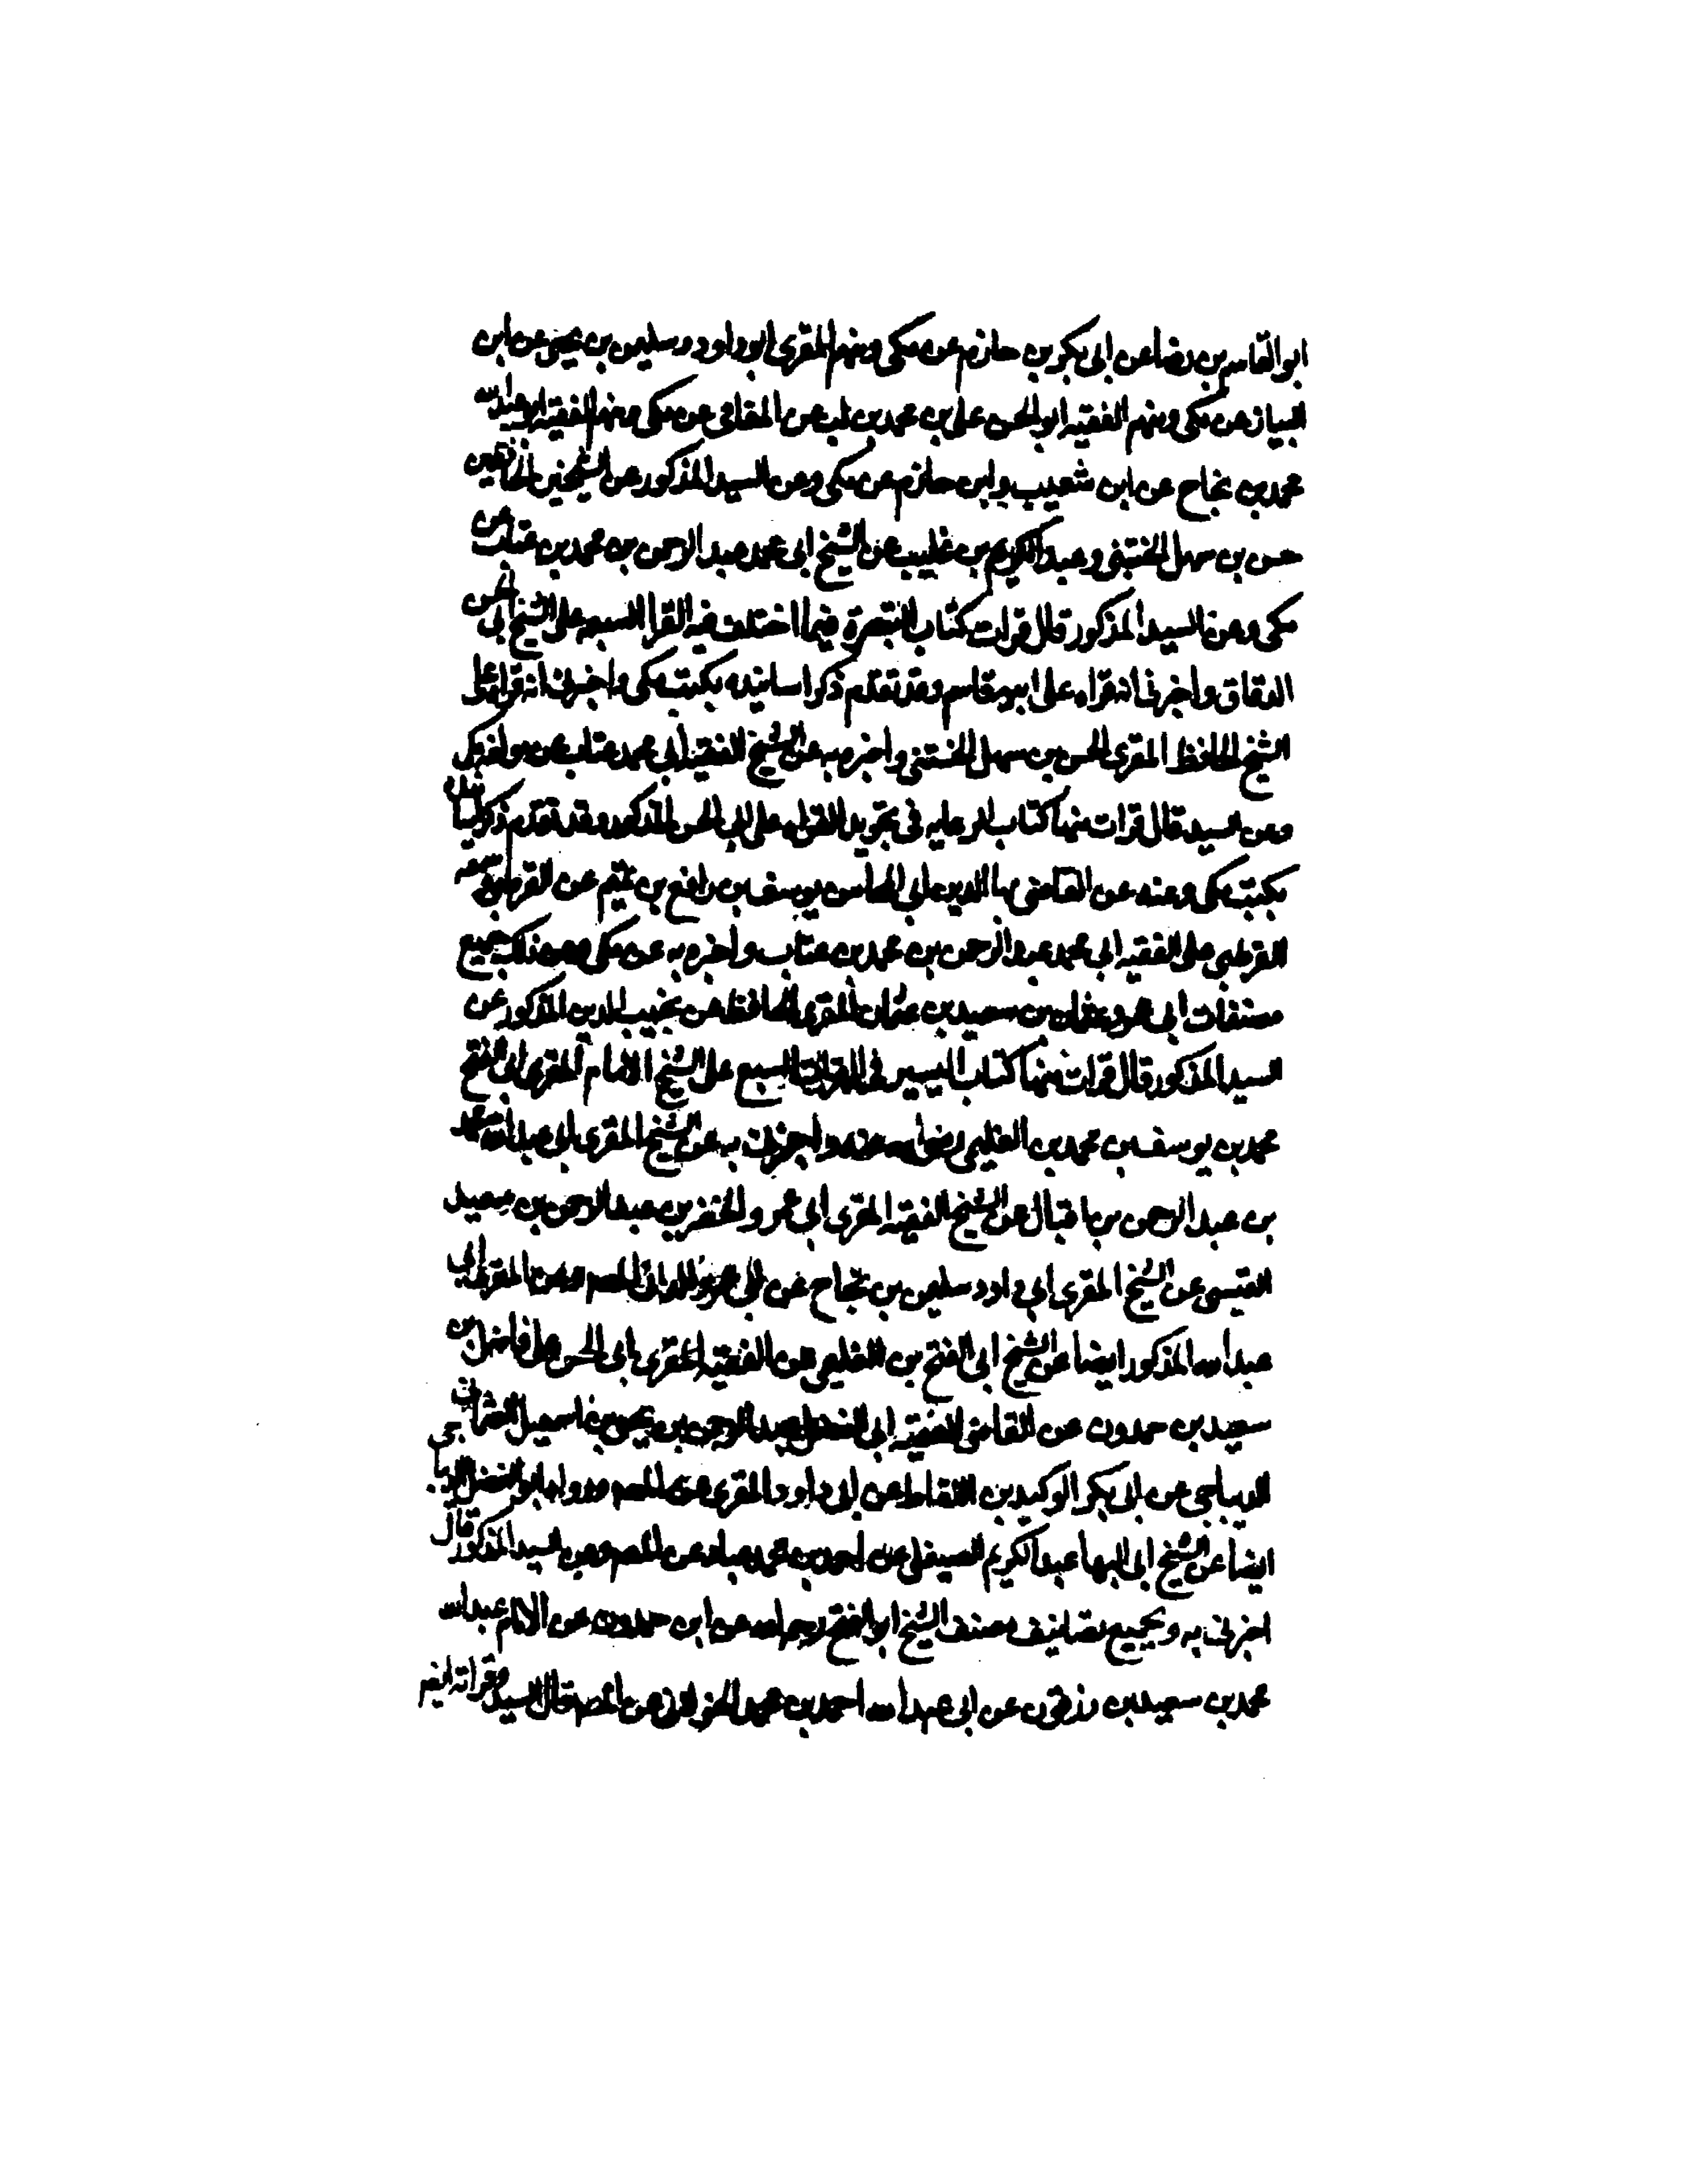 ابو القاسم بن رضا عن ابى بكر بن حازم عن مكى ومنهم المقرى ابو داود وسليمن بن يحيى عن ابن
البياز عن مكى ومنهم الفقيه ابو الحسن على بن محمد بن لب عن المقامى عن مكى ومنهم الفقيه ابو عبد الله
محمد بن نجاح عن ابن شعيب وابن حازم عن مكى وعن السيد المذكور عن الشيخين الحافظين
حسن بن سهل الخشنى وعبد الكريم بن غليب عن الشيخ ابى محمد عبد الرحمن بن محمد بن عتاب عن
مكى وعن السيد المذكور قال قرات كتاب التبصرة فيما اختلف فيه القرا السبعه على الشيخ ابى الحسن
الدقاق واخبرنى انه قراه على ابن قاسم وقد تقدم ذكر اسانيده بكتب مكى واخبرنى انه قراه على
الشيخ الحافظ المقرى الحسن بن سهل الخشنى واخبره به عن الشيخ الفقيه ابى محمد عتاب عن مولفه مكى
وعن السيد قال قرات منها كتاب الرعايه فى تجويد القراه على ابى الحسن المذكور وقد تقدم ذكر
بكتب مكى وعنه عن القاضى بها الدين ابى المحاسن يوسف بن رافع بن تميم عن القرطبى
القرطبى على الفقيه ابى محمد عبد الرحمن بن محمد بن عتاب واخبره به عن مكى وعن جميع
مصنفات ابى عمرو عثمان بن سعيد بن عثمان المقرى الحافظ عن نجيب الدين المذكور عن
السيد المذكور قال قرات منها كتاب التيسير فى القراات السبع على الشيخ الامام المقرى ابى الفتح
محمد بن يوسف بن محمد بن العليمى رضى الله عنه واخبرنى به عن الشيخ المقرى ابى عبد الله محمد
بن عبد الرحمن بن اقبال عن الشيخ الفقيه المقرى ابى عمرو الخضر بن عبد الرحمن بن سعيد
القيسى عن الشيخ المقرى ابى داود سليمن بن نجاح عن ابى عمرو الدانى المصنف وعن المقرى ابى
عبد الله المذكور ايضا عن الشيخ ابى الفتح بن العليمى عن الفقيه المقرى ابى الحسن على فاضل بن
سعيد بن حمدون عن القاضى الفقيه ابى الفضل عبد الرحمن بن يحيى بن اسمعيل العثمانى
الديباجى عن ابى بكر الوكيد بن اللقاط عن ابى داود المقرى عن المصنف ورواه ابو الفضل الديباجى
ايضا عن الشيخ ابى البها عبد الكريم الصيقلى عن احمد بن محمد عباد عن المصنف وعن السيد المذكور قال
اخبرنى به وبجميع تصانيف مصنف الشيخ ابو الفتح رحمه الله عن ابن حمدون عن الامام عبد الله
محمد بن سعيد بن زرقون عن ابى عبد الله احمد بن محمد الخولانى عن المصنف قال السيد وقراته ايضا